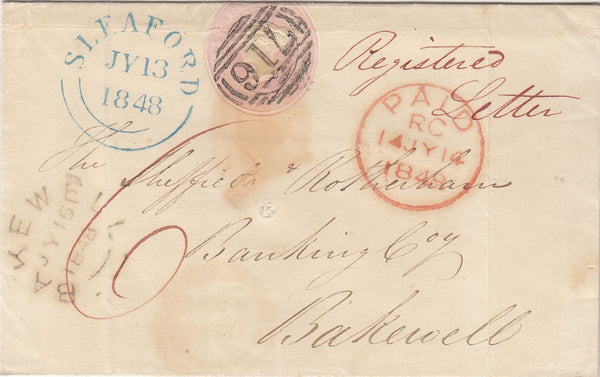 SLEAFORD
JY13
1848
716
Registered
Letter
PAID
RC
14JY14
1848
The Sheffield & Rotherham
Banking Coy
Bakewell
JY15
1848